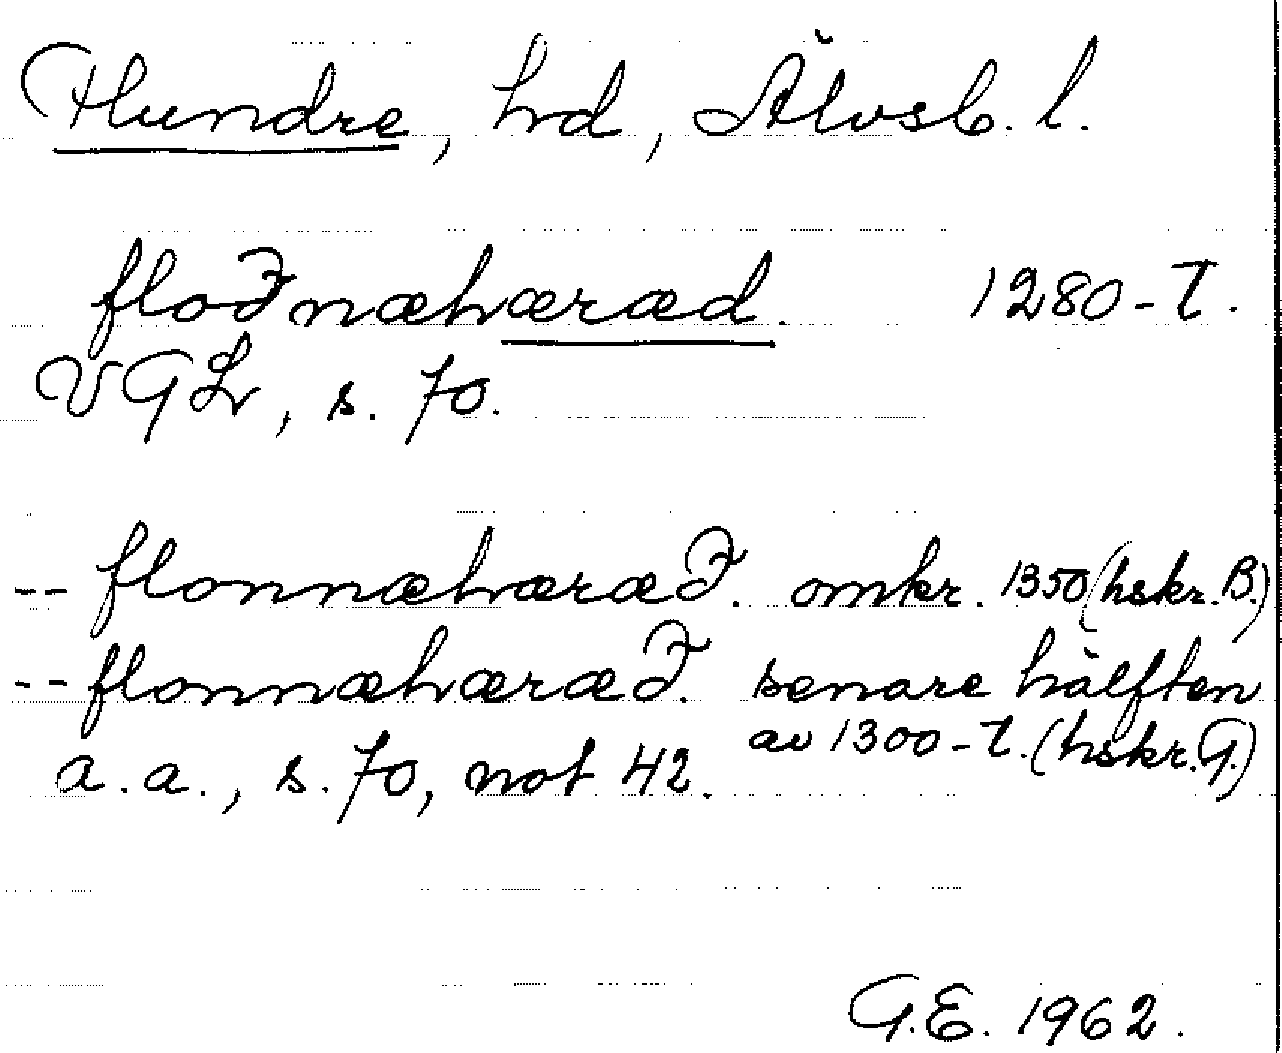 Flundre, hd, Älvsb. l.
floðnæhæræd. 1280-t.
VGL, s. 70.
-- flonnæhæræð. omkr. 1350 (hskr. B.)
-- flonnæhæræð. senare hälften
av 1300-t. (hskr. G.)
a. a., s. 70, not 42.
G.E. 1962.